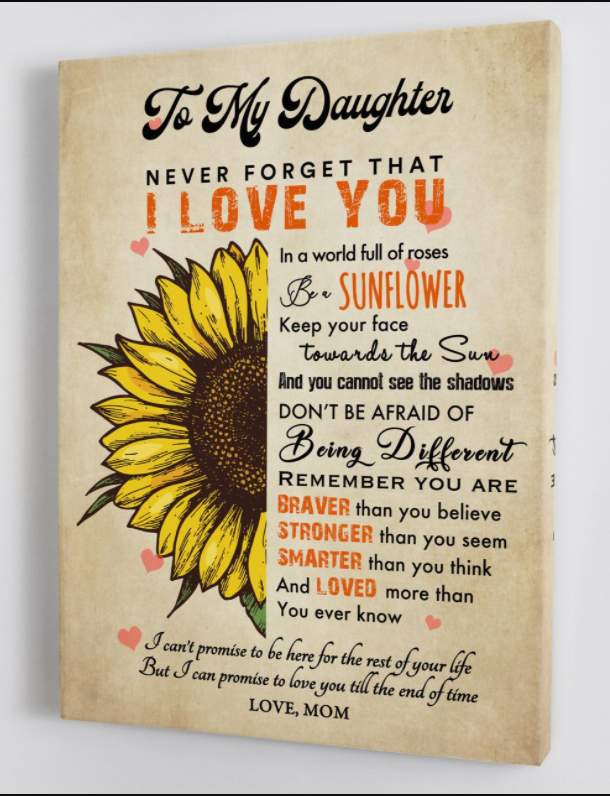 To My Daughter
NEVER FORGET THAT
I LOVE YOU
In a world full of roses
Be a SUNFLOWER
Keep your face
towards the Sun
And you cannot see the shadows
DON'T BE AFRAID OF
Being Different
REMEMBER YOU ARE
BRAVER than you believe
STRONGER than you seem
SMARTER than you think
And LOVED more than
You ever know
I can't promise to be here for the rest of your life
But I can promise to love you till the end of time
LOVE, MOM